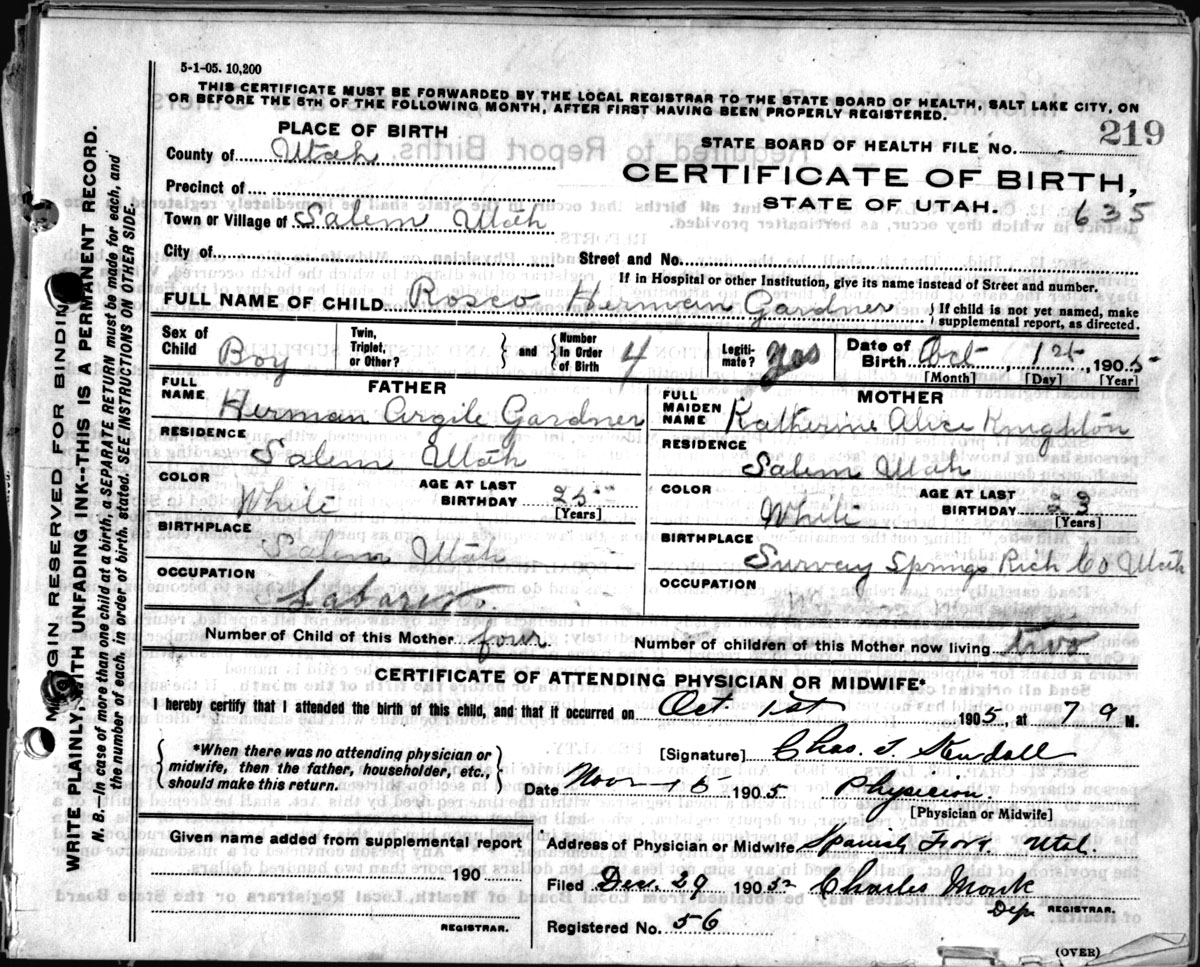 5-1-05. 10,200
THIS CERTIFICATE MUST BE FORWARDED BY THE LOCAL REGISTRAR TO THE STATE BOARD OF HEALTH, SALT LAKE CITY, ON
OR BEFORE THE 5TH OF THE FOLLOWING MONTH, AFTER FIRST HAVING BEEN PROPERLY REGISTERED.
PLACE OF BIRTH
STATE BOARD OF HEALTH FILE No. 219
County of Utah
CERTIFICATE OF BIRTH,
Precinct of
STATE OF UTAH. 635
Town or Village of Salem Utah
City of
Street and No.
If in Hospital or other Institution, give its name instead of Street and number.
FULL NAME OF CHILD Rosco Herman Gardner
If child is not yet named, make
supplemental report, as directed.
Sex of Child Boy
Twin, Triplet, or Other?
and
Number in Order of Birth 4
Legiti- mate? yes
Date of Birth Oct 1st, 1905
[Month] [Day] [Year]
FATHER
FULL NAME Herman Argile Gardner
MOTHER
FULL MAIDEN NAME Katherine Alice Knighton
RESIDENCE Salem Utah
RESIDENCE Salem Utah
COLOR White
AGE AT LAST BIRTHDAY 25
[Years]
COLOR White
AGE AT LAST BIRTHDAY 23
[Years]
BIRTHPLACE Salem Utah
BIRTHPLACE Springs Rich Co Utah
OCCUPATION
OCCUPATION
Number of Child of this Mother four
Number of children of this Mother now living two
CERTIFICATE OF ATTENDING PHYSICIAN OR MIDWIFE*
I hereby certify that I attended the birth of this child, and that it occurred on Oct 1st 1905, at 7 a M.
*When there was no attending physician or
midwife, then the father, householder, etc.,
should make this return.
[Signature] Chas.
Date Nov 15 1905. Physician
[Physician or Midwife]
Given name added from supplemental report
190
REGISTRAR.
Address of Physician or Midwife Spanish Fork
Filed Dec. 29 1905 Charles Monk
Dep. REGISTRAR.
Registered No. 56
(OVER)
MARGIN RESERVED FOR BINDING
WRITE PLAINLY, WITH UNFADING INK--THIS IS A PERMANENT RECORD.
N. B. In case of more than one child at a birth, a SEPARATE RETURN must be made for each, and
the number of each, in order of birth, stated. SEE INSTRUCTIONS ON OTHER SIDE.